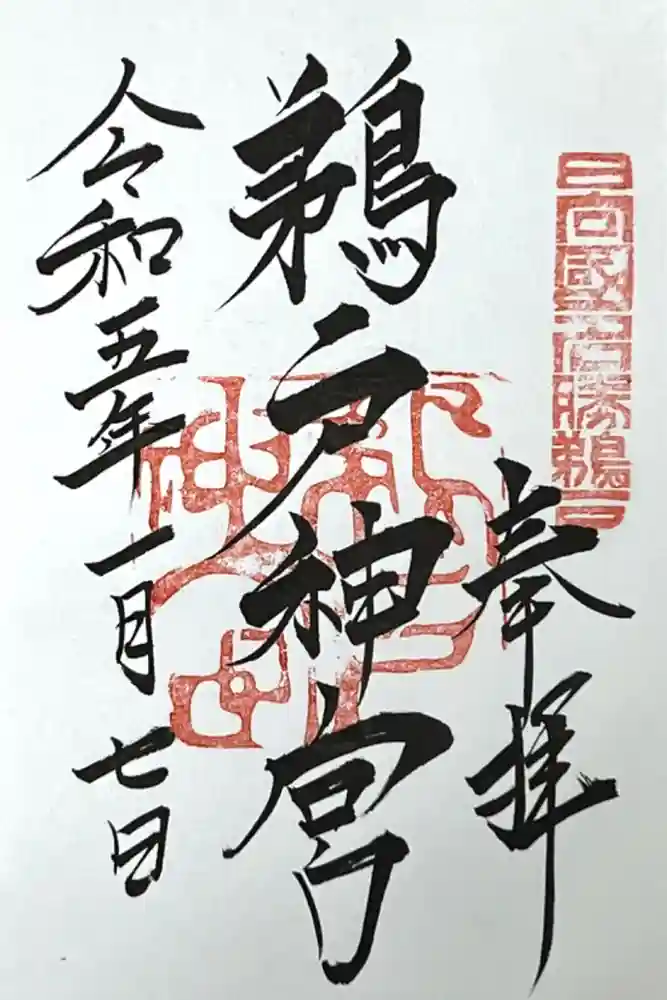 奉拝
日向國名勝鵜戸
鵜戸神宮
令和五年一月七日